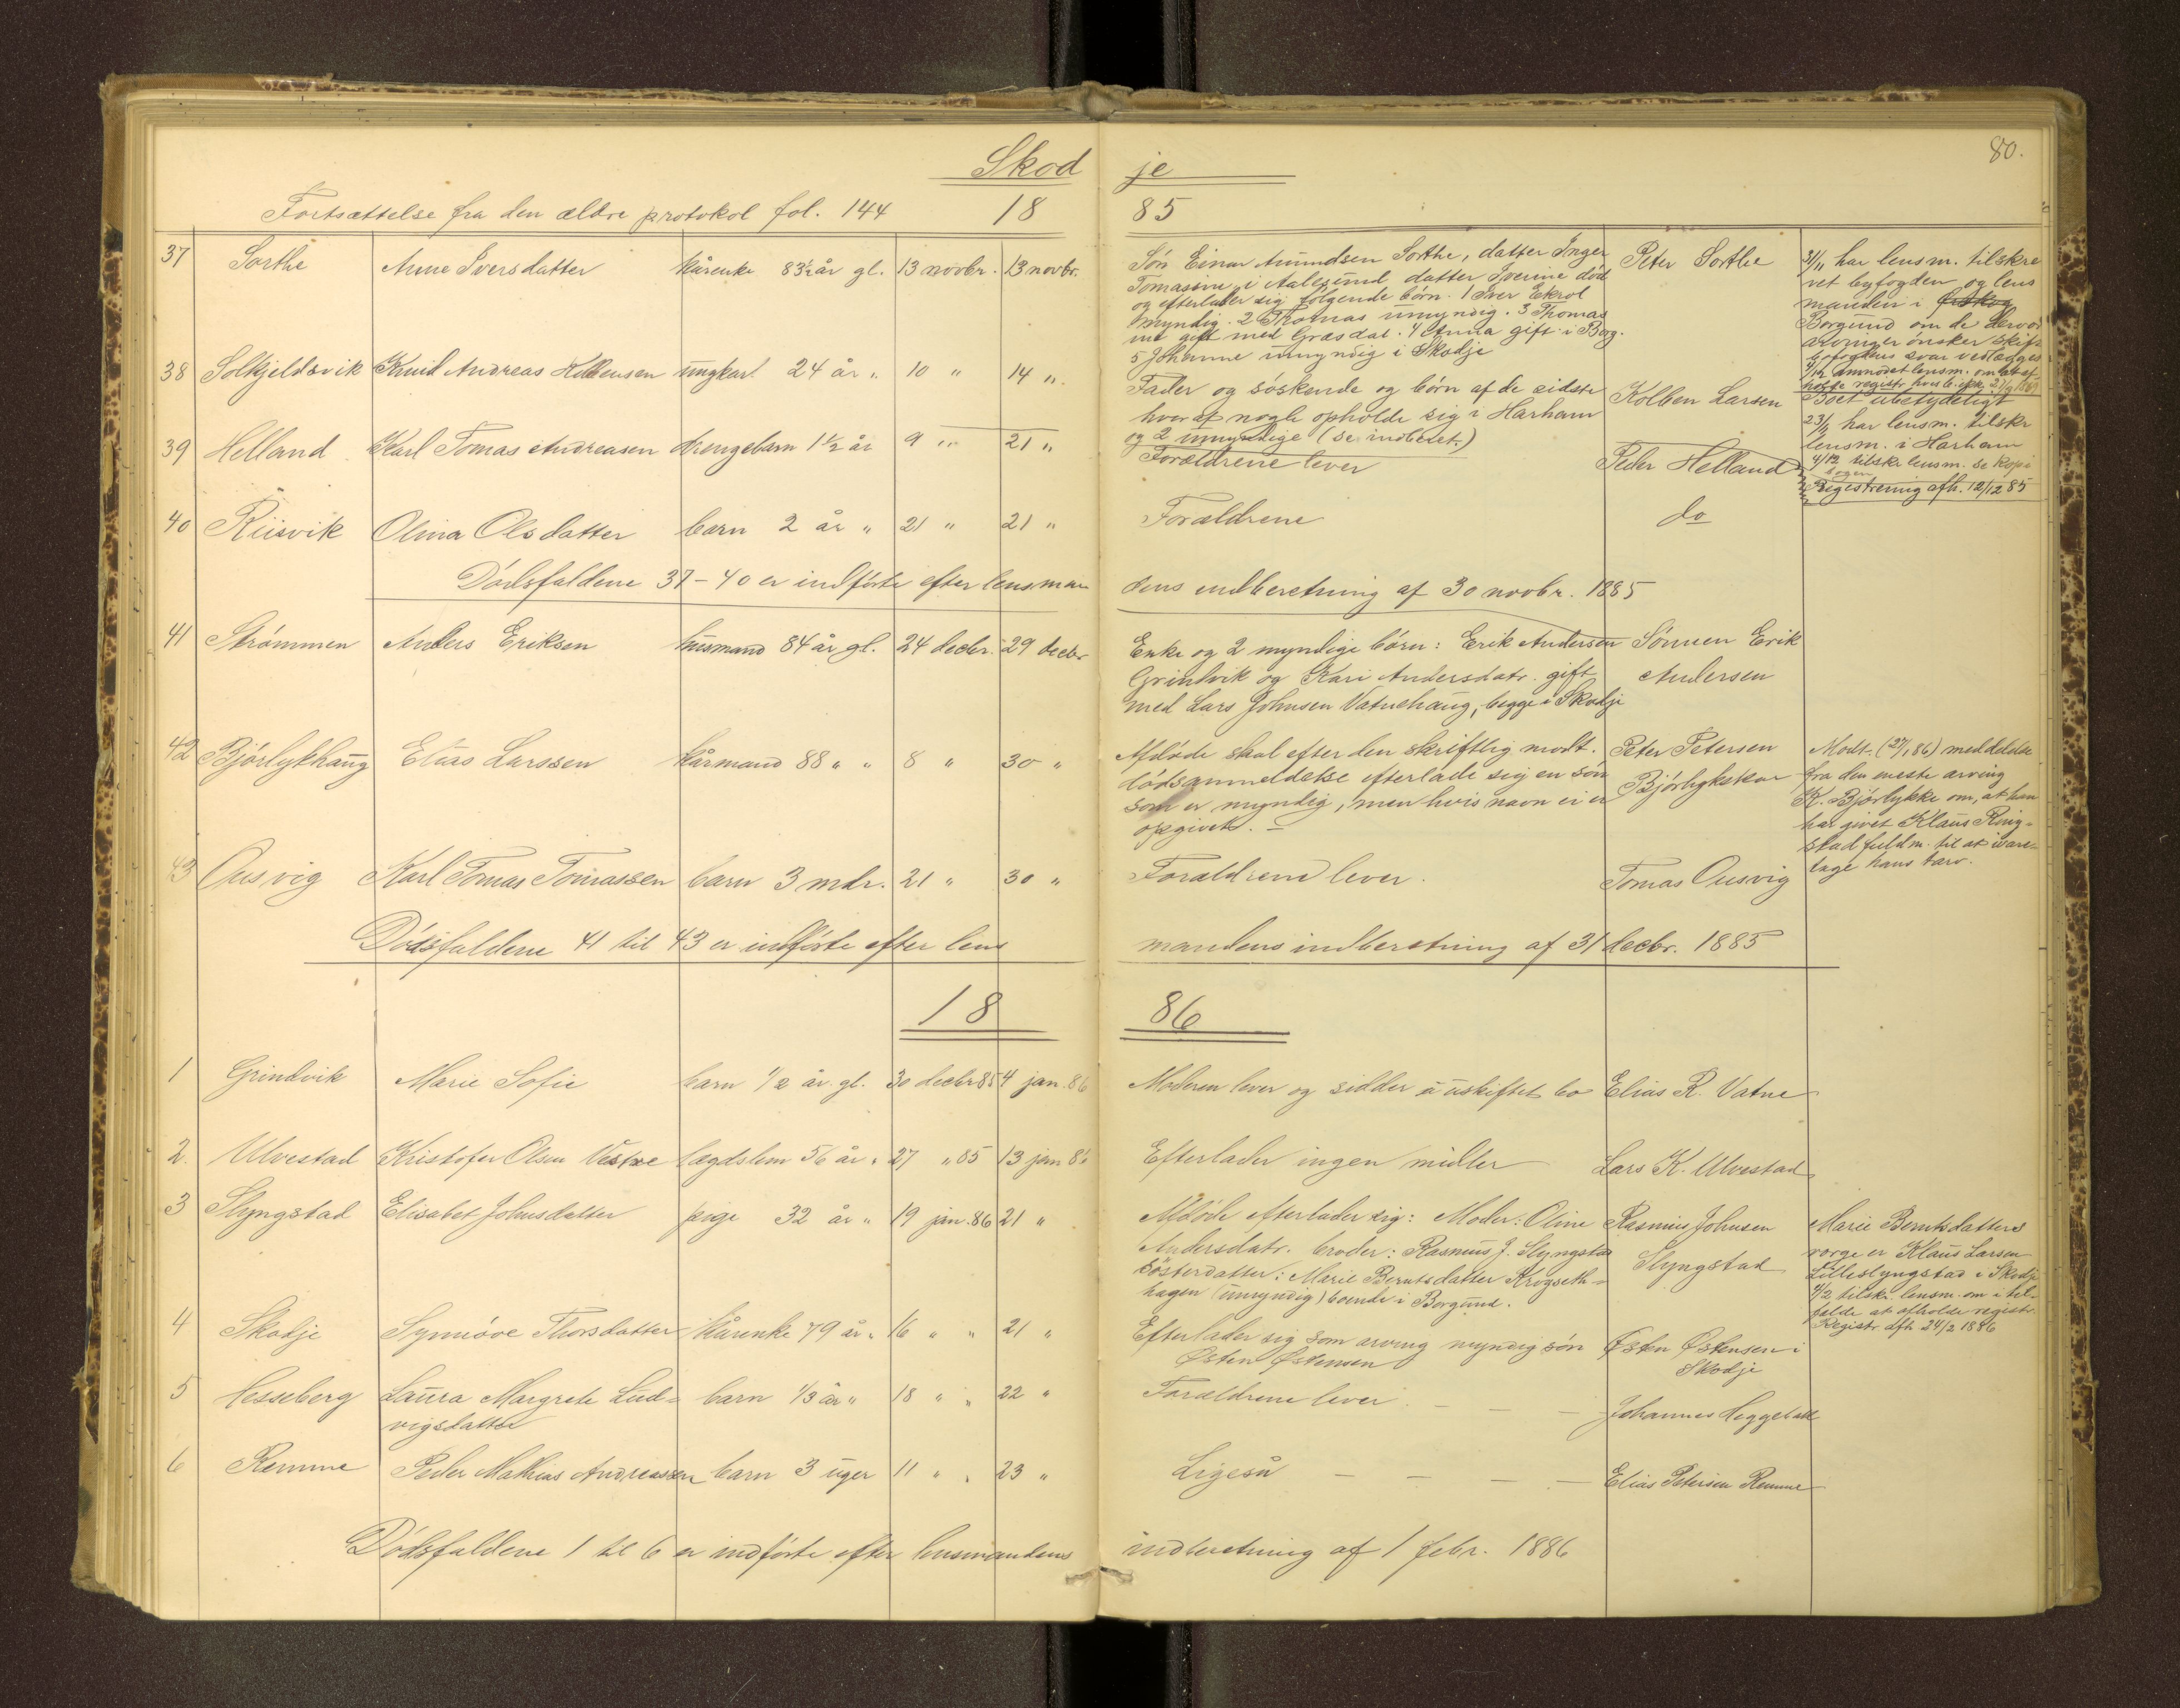 80.
Skodje
Fortsættelse fra den ældre protokol fol. 144 1885
37 Sorthe Anne Iversdatter kårenke 83½ år gl. 13 novbr. 13 novbr.
Søn Einar Amundsen Sorthe, datter Inger
Tomassen i Aalesund datter død
og efterlader sig følgende børn. 1 Iver Ekrol
myndig. 2 Thomas umyndig. 3 Thomas
ine gift med Græsdal. 4 Anna gift i Borg.
5 Johanne umyndig i Skodje
Peter Sorthe
har lensm. tilskre
vet byfogden og lens
manden i Ørskog
Borgund om de
arvinger ønsker skifte
byfogdens svar vedlægges
38 Solkjeldsvik Knud Andreas ungkarl 24 år „ 10 „ 14 „
Fader og søskende og børn af de sidste
hvor af nogle opholde sig i Harham
og 2 umyndige (se indberet.)
Kolben Larsen
Boet ubetydeligt
har lensm. tilskr
lensm. i Harham
4/12 tilskr lensm. se kopi
bogen
Registrering afh. 12/12 85
39 Helland Karl Tomas Andreasen drengebarn 1½ år 9 „ 21 „
Forældrene lever
Peder Helland
40 Riisvik Olina Olsdatter barn 2 år „ 21 „ 21 „
Forældrene
do
Dødsfaldene 37-40 er indførte efter lensman dens indberetning af 30 novbr. 1885
41 Strømmen Anders Eriksen husmand 84 år gl. 24 decbr. 29 decbr
Enke og 2 myndige børn: Erik Andersen
Grindvik og Kari Andersdatr. gift
med Lars Johnsen Vatnehaug, begge i Skodje
Sønnen Erik
Andersen
42 Bjørlykhaug Elias Larssen kårmand 88 „ „ 8 „ 30 „
Afdøde skal efter den skriftlig modt.
dødsanmeldelse efterlade sig en søn
som er myndig, men hvis navn ei er
opgivet. —
Peter Petersen
Bjørlykskar
Modt. (27/1 86) meddelelse
fra den eneste arving
K. Bjørlykke om, at han
har givet Klaus Ring-
stad fuldm. til at vare-
tage hans tarv.
43 Ousvig Karl Tomas Tomassen barn 3 mdr. 21 „ 30 „
Forældrene lever.
Tomas Ousvig
Dødsfaldene 41 til 43 er indførte efter lens mandens indberetning af 31 decbr. 1885
1886
1 Grindvik Marie Sofie barn 1/2 år. gl. 30 decbr 85 4 jan. 86
Moderen lever og sidder i uskiftet bo
Elias R. Vatne
2. Ulvestad Kristofer Olsen Vestre lægdslem 56 år „ 27 „ 85 13 jan 86
Efterlader ingen midler
Lars K. Ulvestad
3 Slyngstad Elisabet Johnsdatter pige 32 år „ 19 jan. 86 21 „
Afdøde efterlader sig: Moder: Oline
Andersdatr. broder: Rasmus J. Slyngstad
Søsterdatter: Marie Berntsdatter Krogseth-
hagen (umyndig) boende i Borgund.
Rasmus Johnsen
Slyngstad
Marie Berntsdatters
værge er Klaus Larsen
Lilleslyngstad i Skodje
4/2 tilskr. lensm. om i til-
fælde at afholde registr.
Registr. afh. 24/2 1886
4 Skodje Synnøve Thorsdatter kårenke 79 år „ 16 „ „ 21 „
Efterlader sig som arving myndig søn
Østen Østensen
Østen Østensen i
Skodje
5 Hesseberg Laura Margrete Lud-
vigsdatter
barn 1/3 år „ 18 „ „ 22 „
Forældrene lever. — — —
Johannes
6 Remme Peder Mathias Andreassen barn 3 uger 11 „ „ 23 „
Ligeså — — — —
Elias Petersen Remme
Dødsfaldene 1 til 6 er indførte efter lensmandens indberetning af 1 febr. 1886